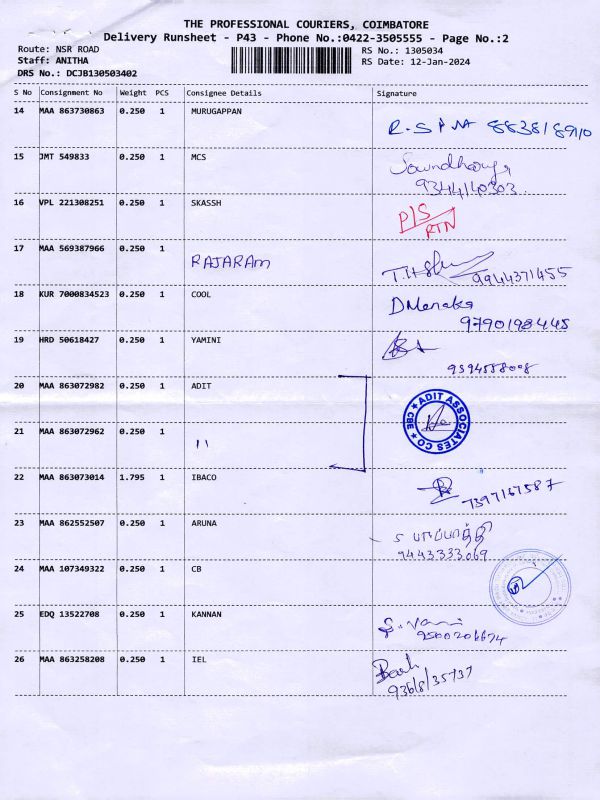 THE PROFESSIONAL COURIERS, COIMBATORE
Delivery Runsheet - P43 - Phone No.:0422-3505555 - Page No.:2
Route: NSR ROAD
Staff: ANITHA
DRS No.: DCJB130503402
RS No.: 1305034
RS Date: 12-Jan-2024
S No Consignment No Weight PCS Consignee Details Signature
14 MAA 863730863 0.250 1 MURUGAPPAN
8838189110
15 JMT 549833 0.250 1 MCS
9344140303
16 VPL 221308251 0.250 1 SKASSH P/S
RTN
17 MAA 569387966 0.250 1 RAJARAM
9944371455
18 KUR 7000834523 0.250 1 COOL DMenaka
9790198445
19 HRD 50618427 0.250 1 YAMINI
20 MAA 863072982 0.250 1 ADIT ADIT ASSOCIATES CO CBE
21 MAA 863072962 0.250 1 11
22 MAA 863073014 1.795 1 IBACO
7397167587
23 MAA 862552507 0.250 1 ARUNA
9443333069
24 MAA 107349322 0.250 1 CB
25 EDQ 13522708 0.250 1 KANNAN S. Vani
26 MAA 863258208 0.250 1 IEL
9368135737